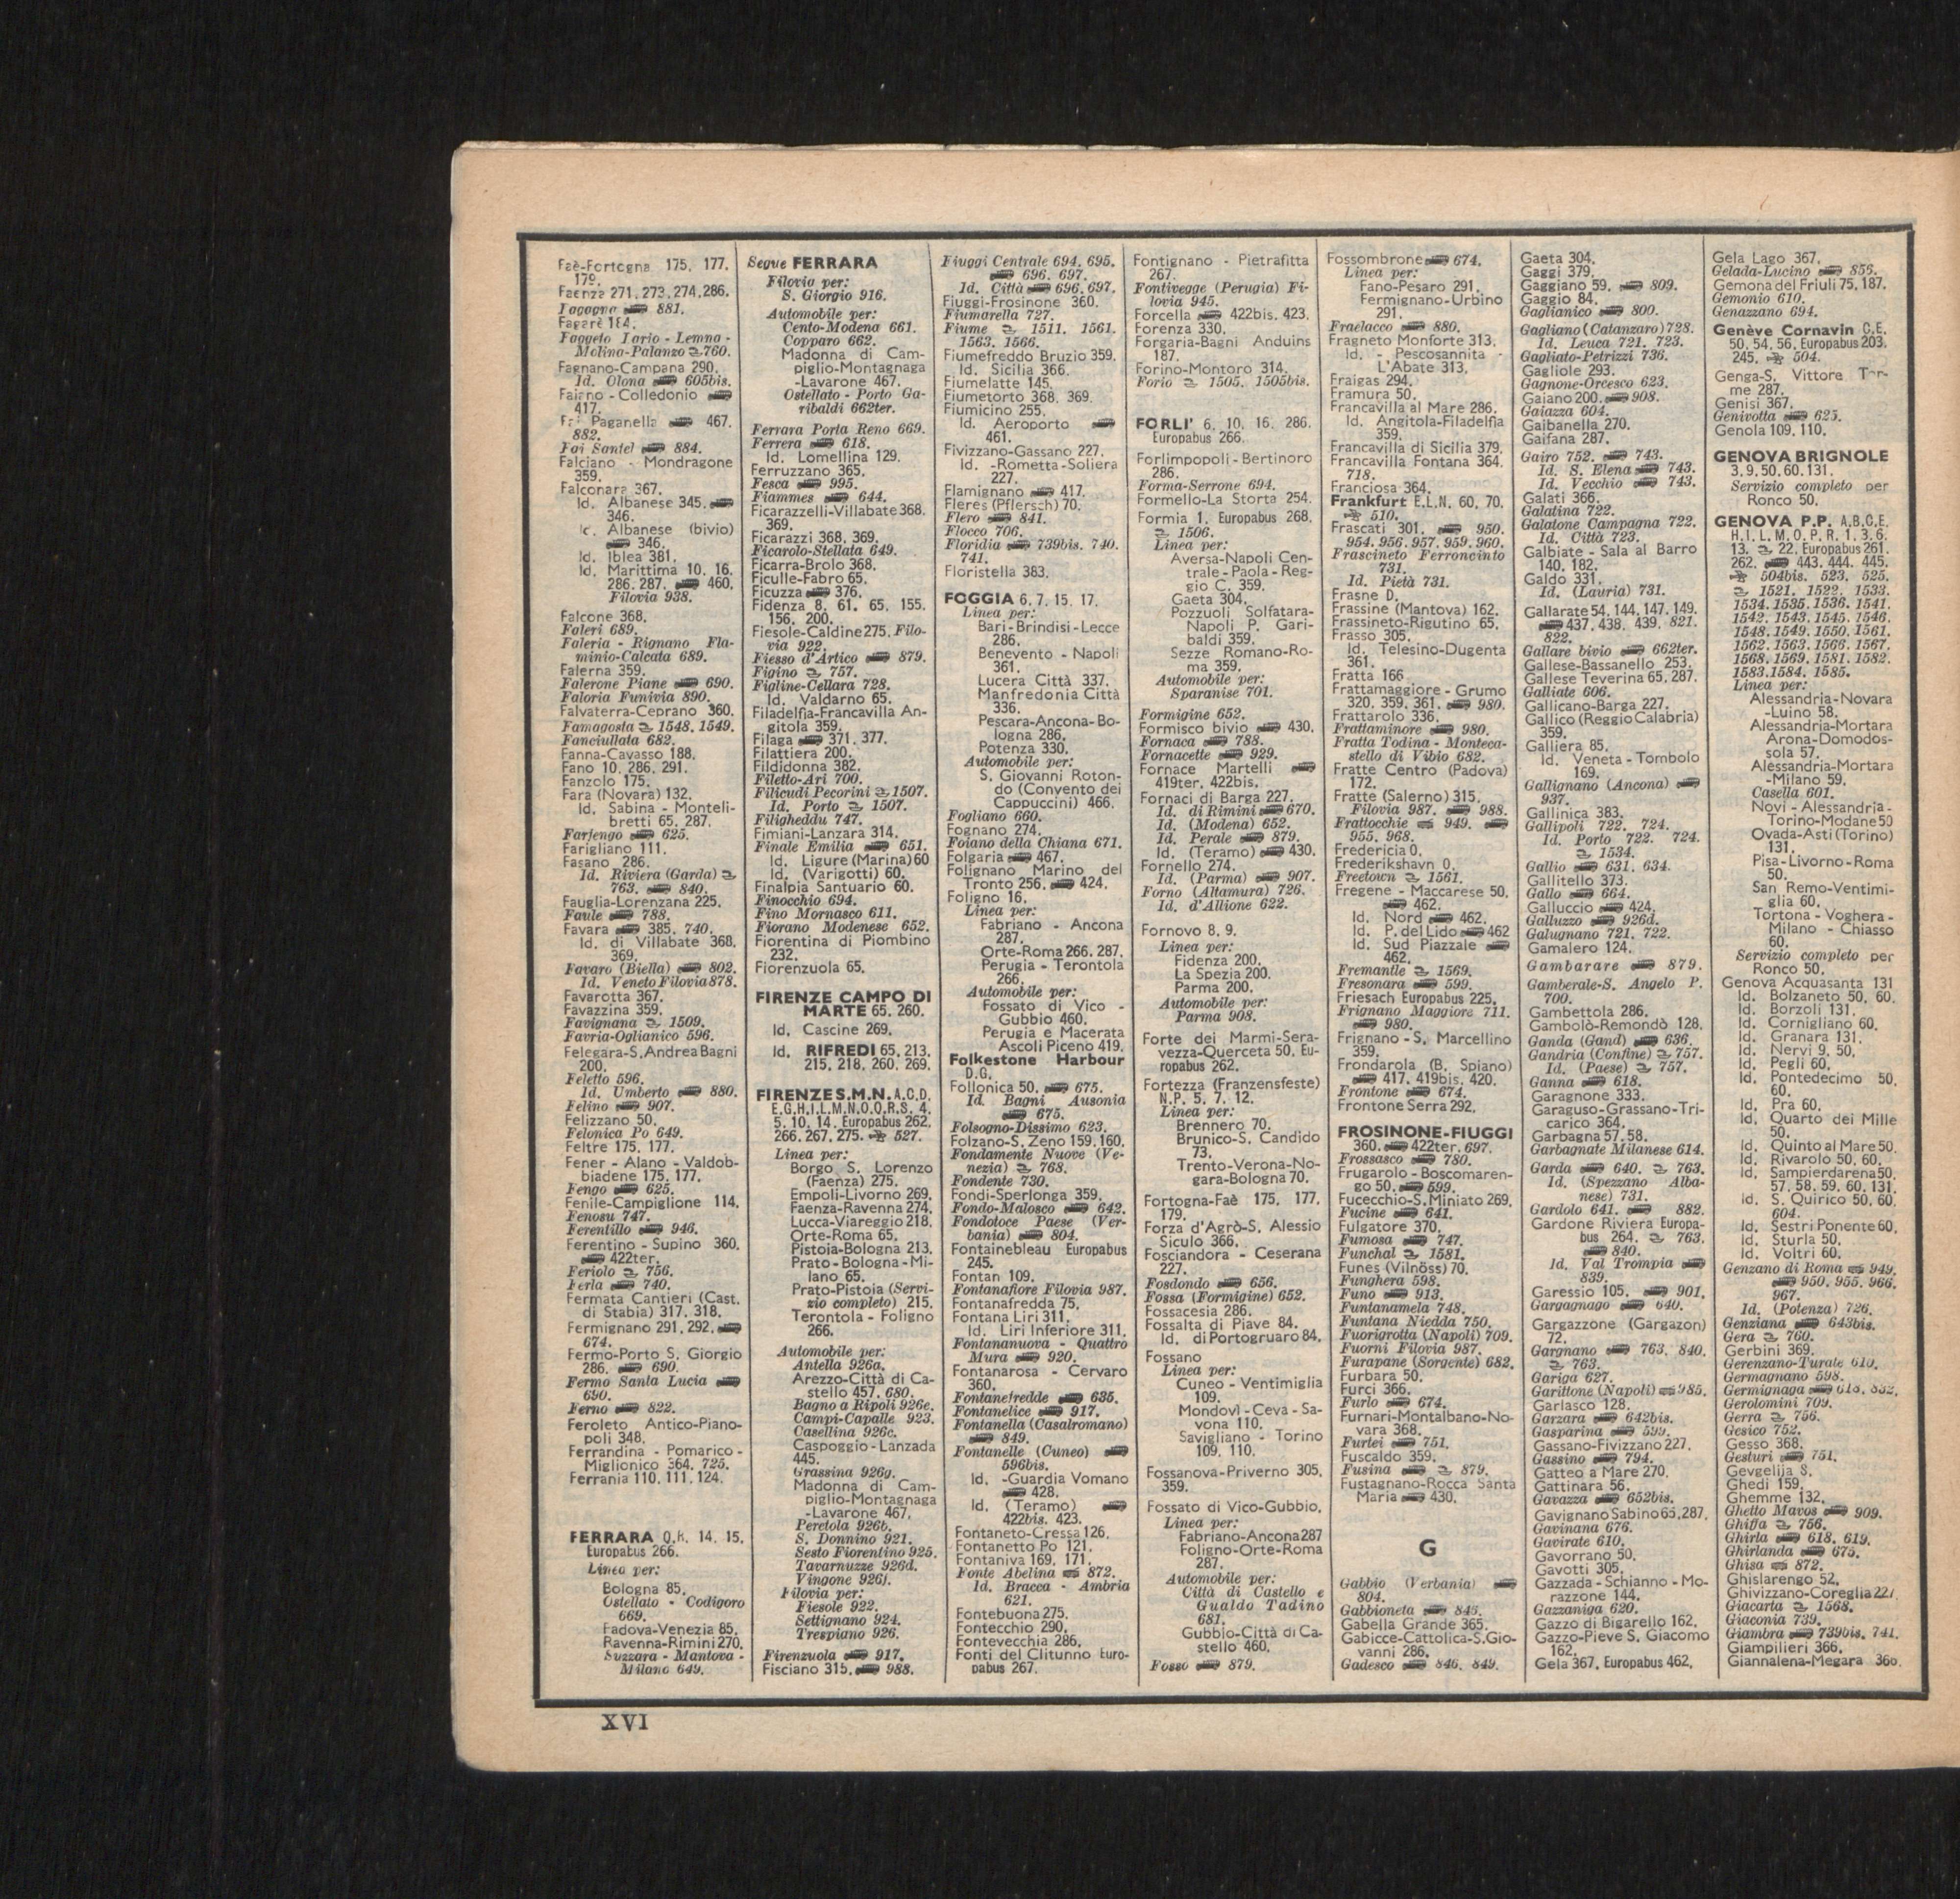 Faè-Fortogna 175, 177,
179.
Faenza 271, 273, 274, 286.
Fagagna 881.
Fagarè 184.
Faggeto Lario - Lemna -
Molina-Palanzo 760.
Fagnano-Campana 290.
Id. Olona 605bis.
Faiano - Colledonio
417.
Fai Paganella 467.
882.
Fai Santel 884.
Falciano - Mondragone
359.
Falconara 367.
Id. Albanese 345.
346.
Id. Albanese (bivio)
346.
Id. Iblea 381.
Id. Marittima 10, 16.
286. 287. 460.
Filovia 938.
Falcone 368.
Faleri 689.
Faleria - Rignano Fla-
minio-Calcata 689.
Falerna 359.
Falerone Piane 690.
Faloria Funivia 890.
Falvaterra-Ceprano 360.
Famagosta 1548. 1549.
Fanciullata 682.
Fanna-Cavasso 188.
Fano 10, 286, 291.
Fanzolo 175.
Fara (Novara) 132.
Id. Sabina - Monteli-
bretti 65, 287.
Farfengo 625.
Farigliano 111.
Fasano 286.
Id. Riviera (Garda)
763. 840.
Fauglia-Lorenzana 225.
Faule 788.
Favara 385. 740.
Id. di Villabate 368.
369.
Favaro (Biella) 802.
Id. Veneto Filovia 878.
Favarotta 367.
Favazzina 359.
Favignana 1509.
Favria-Oglianico 596.
Felegara-S. Andrea Bagni
200.
Feletto 596.
Id. Umberto 880.
Felino 907.
Felizzano 50.
Felonica Po 649.
Feltre 175, 177.
Fener - Alano - Valdob-
biadene 175, 177.
Fengo 625.
Fenile-Campiglione 114.
Fenosu 747.
Ferentillo 946.
Ferentino - Supino 360.
422ter.
Feriolo 756.
Ferla 740.
Fermata Cantieri (Cast.
di Stabia) 317, 318.
Fermignano 291, 292.
674.
Fermo-Porto S. Giorgio
286. 690.
Fermo Santa Lucia
690.
Ferno 822.
Feroleto Antico-Piano-
poli 348.
Ferrandina - Pomarico -
Miglionico 364. 725.
Ferrania 110, 111, 124.
FERRARA Q.R. 14, 15.
Europabus 266.
Linea per:
Bologna 85.
Ostellato - Codigoro
669.
Padova-Venezia 85.
Ravenna-Rimini 270.
Suzzara - Mantova -
Milano 649.
Segue FERRARA
Filovia per:
S. Giorgio 916.
Automobile per:
Cento-Modena 661.
Copparo 662.
Madonna di Cam-
piglio-Montagnaga
-Lavarone 467.
Ostellato - Porto Ga-
ribaldi 662ter.
Ferrara Porta Reno 669.
Ferrera 618.
Id. Lomellina 129.
Ferruzzano 365.
Fesca 995.
Fiammes 644.
Ficarazzelli-Villabate 368.
369.
Ficarazzi 368, 369.
Ficarolo-Stellata 649.
Ficarra-Brolo 368.
Ficulle-Fabro 65.
Ficuzza 376.
Fidenza 8, 61, 65, 155.
156, 200.
Fiesole-Caldine 275. Filo-
via 922.
Fiesso d'Artico 879.
Figino 757.
Figline-Cellara 728.
Id. Valdarno 65.
Filadelfia-Francavilla An-
gitola 359.
Filaga 371. 377.
Filattiera 200.
Fildidonna 382.
Filetto-Ari 700.
Filicudi Pecorini 1507.
Id. Porto 1507.
Filigheddu 747.
Fimiani-Lanzara 314.
Finale Emilia 651.
Id. Ligure (Marina) 60
Id. (Varigotti) 60.
Finalpia Santuario 60.
Finocchio 694.
Fino Mornasco 611.
Fiorano Modenese 652.
Fiorentina di Piombino
232.
Fiorenzuola 65.
FIRENZE CAMPO DI
MARTE 65. 260.
Id. Cascine 269.
Id. RIFREDI 65, 213.
215, 218, 260, 269.
FIRENZE S.M.N. A.C.D.
E.G.H.I.L.M.N.O.Q.R.S. 4.
5. 10. 14. Europabus 262.
266. 267. 275. 527.
Linea per:
Borgo S. Lorenzo
(Faenza) 275.
Empoli-Livorno 269.
Faenza-Ravenna 274.
Lucca-Viareggio 218.
Orte-Roma 65.
Pistoia-Bologna 213.
Prato - Bologna - Mi-
lano 65.
Prato-Pistoia (Servi-
zio completo) 215.
Terontola - Foligno
266.
Automobile per:
Antella 926a.
Arezzo-Città di Ca-
stello 457. 680.
Bagno a Ripoli 926e.
Campi-Capalle 923.
Casellina 926c.
Caspoggio - Lanzada
445.
Grassina 926g.
Madonna di Cam-
piglio-Montagnaga
-Lavarone 467.
Peretola 926b.
S. Donnino 921.
Sesto Fiorentino 925.
Tavarnuzze 926d.
Vingone 926f.
Filovia per:
Fiesole 922.
Settignano 924.
Trespiano 926.
Firenzuola 917.
Fisciano 315. 988.
Fiuggi Centrale 694, 695.
696. 697.
Id. Città 696. 697.
Fiuggi-Frosinone 360.
Fiumarella 727.
Fiume 1511. 1561.
1563. 1566.
Fiumefreddo Bruzio 359.
Id. Sicilia 366.
Fiumelatte 145.
Fiumetorto 368, 369.
Fiumicino 255.
Id. Aeroporto
461.
Fivizzano-Gassano 227.
Id. -Rometta-Soliera
227.
Flamignano 417.
Fleres (Pflersch) 70.
Flero 841.
Flocco 706.
Floridia 739bis. 740.
741.
Floristella 383.
FOGGIA 6, 7, 15, 17.
Linea per:
Bari - Brindisi - Lecce
286.
Benevento - Napoli
361.
Lucera Città 337.
Manfredonia Città
336.
Pescara-Ancona-Bo-
logna 286.
Potenza 330.
Automobile per:
S. Giovanni Roton-
do (Convento dei
Cappuccini) 466.
Fogliano 660.
Fognano 274.
Foiano della Chiana 671.
Folgaria 467.
Folignano Marino del
Tronto 256. 424.
Foligno 16.
Linea per:
Fabriano - Ancona
287.
Orte-Roma 266, 287.
Perugia - Terontola
266.
Automobile per:
Fossato di Vico -
Gubbio 460.
Perugia e Macerata
Ascoli Piceno 419.
Folkestone Harbour
D.G.
Follonica 50. 675.
Id. Bagni Ausonia
675.
Folsogno-Dissimo 623.
Folzano-S. Zeno 159, 160.
Fondamente Nuove (Ve-
nezia) 768.
Fondente 730.
Fondi-Sperlonga 359.
Fondo-Malosco 642.
Fondotoce Paese (Ver-
bania) 804.
Fontainebleau Europabus
245.
Fontan 109.
Fontanafiore Filovia 987.
Fontanafredda 75.
Fontana Liri 311.
Id. Liri Inferiore 311.
Fontananuova - Quattro
Mura 920.
Fontanarosa - Cervaro
360.
Fontanefredde 635.
Fontanelice 917.
Fontanella (Casalromano)
849.
Fontanelle (Cuneo)
596bis.
Id. -Guardia Vomano
428.
Id. (Teramo)
422bis. 423.
Fontaneto-Cressa 126.
Fontanetto Po 121.
Fontaniva 169, 171.
Fonte Abelina 872.
Id. Bracca - Ambria
621.
Fontebuona 275.
Fontecchio 290.
Fontevecchia 286.
Fonti del Clitunno Euro-
pabus 267.
Fontignano - Pietrafitta
267.
Fontivegge (Perugia) Fi-
lovia 945.
Forcella 422bis. 423.
Forenza 330.
Forgaria-Bagni Anduins
187.
Forino-Montoro 314.
Forio 1505. 1505bis.
FORLI' 6, 10, 16, 286.
Europabus 266.
Forlimpopoli - Bertinoro
286.
Forma-Serrone 694.
Formello-La Storta 254.
Formia 1. Europabus 268.
1506.
Linea per:
Aversa-Napoli Cen-
trale - Paola - Reg-
gio C. 359.
Gaeta 304.
Pozzuoli Solfatara-
Napoli P. Gari-
baldi 359.
Sezze Romano-Ro-
ma 359.
Automobile per:
Sparanise 701.
Formigine 652.
Formisco bivio 430.
Fornaca 788.
Fornacette 929.
Fornace Martelli
419ter, 422bis.
Fornaci di Barga 227.
Id. di Rimini 670.
Id. (Modena) 652.
Id. Perale 879.
Id. (Teramo) 430.
Fornello 274.
Id. (Parma) 907.
Forno (Altamura) 726.
Id. d'Allione 622.
Fornovo 8, 9.
Linea per:
Fidenza 200.
La Spezia 200.
Parma 200.
Automobile per:
Parma 908.
Forte dei Marmi-Sera-
vezza-Querceta 50. Eu-
ropabus 262.
Fortezza (Franzensfeste)
N.P. 5, 7, 12.
Linea per:
Brennero 70.
Brunico-S. Candido
73.
Trento-Verona-No-
gara-Bologna 70.
Fortogna-Faè 175, 177.
179.
Forza d'Agrò-S. Alessio
Siculo 366.
Fosciandora - Ceserana
227.
Fosdondo 656.
Fossa (Formigine) 652.
Fossacesia 286.
Fossalta di Piave 84.
Id. di Portogruaro 84.
Fossano
Linea per:
Cuneo - Ventimiglia
109.
Mondovì - Ceva - Sa-
vona 110.
Savigliano - Torino
109, 110.
Fossanova-Priverno 305.
359.
Fossato di Vico-Gubbio.
Linea per:
Fabriano-Ancona 287
Foligno-Orte-Roma
287.
Automobile per:
Città di Castello e
Gualdo Tadino
681.
Gubbio-Città di Ca-
stello 460.
Fosso 879.
Fossombrone 674.
Linea per:
Fano-Pesaro 291.
Fermignano-Urbino
291.
Fraelacco 880.
Fragneto Monforte 313.
Id. - Pescosannita -
L'Abate 313.
Fraigas 294.
Framura 50.
Francavilla al Mare 286.
Id. Angitola-Filadelfia
359.
Francavilla di Sicilia 379.
Francavilla Fontana 364.
718.
Franciosa 364.
Frankfurt E.L.N. 60, 70.
510.
Frascati 301. 950.
954. 956. 957. 959. 960.
Frascineto Ferroncinto
731.
Id. Pietà 731.
Frasne D.
Frassine (Mantova) 162.
Frassineto-Rigutino 65.
Frasso 305.
Id. Telesino-Dugenta
361.
Fratta 166
Frattamaggiore - Grumo
320, 359, 361. 980.
Frattarolo 336.
Frattaminore 980.
Fratta Todina - Monteca-
stello di Vibio 682.
Fratte Centro (Padova)
172.
Fratte (Salerno) 315.
Filovia 987. 988.
Frattocchie 949.
955. 968.
Fredericia O.
Frederikshavn O.
Freetown 1561.
Fregene - Maccarese 50.
462.
Id. Nord 462.
Id. P. del Lido 462
Id. Sud Piazzale
462.
Fremantle 1569.
Fresonara 599.
Friesach Europabus 225.
Frignano Maggiore 711.
980.
Frignano - S. Marcellino
359.
Frondarola (B. Spiano)
417. 419bis. 420.
Frontone 674.
Frontone Serra 292.
FROSINONE-FIUGGI
360. 422ter. 697.
Frossasco 780.
Frugarolo - Boscomaren-
go 50. 599.
Fucecchio-S. Miniato 269.
Fucine 641.
Fulgatore 370.
Fumosa 747.
Funchal 1581.
Funes (Vilnöss) 70.
Funghera 598.
Funo 913.
Funtanamela 748.
Funtana Niedda 750.
Fuorigrotta (Napoli) 709.
Fuorni Filovia 987.
Furapane (Sorgente) 682.
Furbara 50.
Furci 366.
Furlo 674.
Furnari-Montalbano-No-
vara 368.
Furtei 751.
Fuscaldo 359.
Fusina 879.
Fustagnano-Rocca Santa
Maria 430.
G
Gabbio (Verbania)
804.
Gabbioneta 845.
Gabella Grande 365.
Gabicce-Cattolica-S. Gio-
vanni 286.
Gadesco 846. 849.
Gaeta 304.
Gaggi 379.
Gaggiano 59. 809.
Gaggio 84.
Gaglianico 800.
Gagliano (Catanzaro) 728.
Id. Leuca 721. 723.
Gagliato-Petrizzi 736.
Gagliole 293.
Gagnone-Orcesco 623.
Gaiano 200. 908.
Gaiazza 604.
Gaibanella 270.
Gaifana 287.
Gairo 752. 743.
Id. S. Elena 743.
Id. Vecchio 743.
Galati 366.
Galatina 722.
Galatone Campagna 722.
Id. Città 723.
Galbiate - Sala al Barro
140, 182.
Galdo 331.
Id. (Lauria) 731.
Gallarate 54, 144, 147, 149.
437. 438. 439. 821.
822.
Gallare bivio 662ter.
Gallese-Bassanello 253.
Gallese Teverina 65, 287.
Galliate 606.
Gallicano-Barga 227.
Gallico (Reggio Calabria)
359.
Galliera 85.
Id. Veneta - Tombolo
169.
Gallignano (Ancona)
937.
Gallinica 383.
Gallipoli 722. 724.
Id. Porto 722. 724.
1534.
Gallio 631. 634.
Gallitello 373.
Gallo 664.
Galluccio 424.
Galluzzo 926d.
Galugnano 721. 722.
Gamalero 124.
Gambarare 879.
Gamberale-S. Angelo P.
700.
Gambettola 286.
Gambolò-Remondò 128.
Ganda (Gand) 636.
Gandria (Confine) 757.
Id. (Paese) 757.
Ganna 618.
Garagnone 333.
Garaguso-Grassano-Tri-
carico 364.
Garbagna 57, 58.
Garbagnate Milanese 614.
Garda 640. 763.
Id. (Spezzano Alba-
nese) 731.
Gardolo 641. 882.
Gardone Riviera Europa-
bus 264. 763.
840.
Id. Val Trompia
839.
Garessio 105. 901.
Gargagnago 640.
Gargazzone (Gargazon)
72.
Gargnano 763. 840.
763.
Gariga 627.
Garittone (Napoli) 985.
Garlasco 128.
Garzara 642bis.
Gasparina 599.
Gassano-Fivizzano 227.
Gassino 794.
Gatteo a Mare 270.
Gattinara 56.
Gavazza 652bis.
Gavignano Sabino 65, 287.
Gavinana 676.
Gavirate 610.
Gavorrano 50.
Gavotti 305.
Gazzada - Schianno - Mo-
razzone 144.
Gazzaniga 620.
Gazzo di Bigarello 162.
Gazzo-Pieve S. Giacomo
162.
Gela 367. Europabus 462.
Gela Lago 367.
Gelada-Lucino 856.
Gemona del Friuli 75, 187.
Gemonio 610.
Genazzano 694.
Genève Cornavin C.E.
50, 54, 56. Europabus 203.
245. 504.
Genga-S. Vittore Ter-
me 287.
Genisi 367.
Genivotta 625.
Genola 109, 110.
GENOVA BRIGNOLE
3, 9, 50, 60, 131.
Servizio completo per
Ronco 50.
GENOVA P.P. A.B.C.E.
H.I.L.M.O.P.R. 1. 3. 6.
13. 22. Europabus 261.
262. 443. 444. 445.
504bis. 523. 525.
1521. 1522. 1533.
1534. 1535. 1536. 1541.
1542. 1543. 1545. 1546.
1548. 1549. 1550. 1561.
1562. 1563. 1566. 1567.
1568. 1569. 1581. 1582.
1583. 1584. 1585.
Linea per:
Alessandria-Novara
-Luino 58.
Alessandria-Mortara
Arona-Domodos-
sola 57.
Alessandria-Mortara
-Milano 59.
Casella 601.
Novi - Alessandria -
Torino-Modane 50
Ovada-Asti (Torino)
131.
Pisa-Livorno-Roma
50.
San Remo-Ventimi-
glia 60.
Tortona - Voghera -
Milano - Chiasso
60.
Servizio completo per
Ronco 50.
Genova Acquasanta 131
Id. Bolzaneto 50, 60.
Id. Borzoli 131.
Id. Cornigliano 60.
Id. Granara 131.
Id. Nervi 9, 50.
Id. Pegli 60.
Id. Pontedecimo 50.
60.
Id. Pra 60.
Id. Quarto dei Mille
50.
Id. Quinto al Mare 50.
Id. Rivarolo 50, 60.
Id. Sampierdarena 50.
57, 58, 59, 60, 131.
Id. S. Quirico 50, 60.
604.
Id. Sestri Ponente 60.
Id. Sturla 50.
Id. Voltri 60.
Genzano di Roma 949.
950. 955. 966.
967.
Id. (Potenza) 726.
Genziana 643bis.
Gera 760.
Gerbini 369.
Gerenzano-Turate 610.
Germagnano 598.
Germignaga 618. 832.
Gerolomini 709.
Gerra 756.
Gesico 752.
Gesso 368.
Gesturi 751.
Gevgelija S.
Ghedi 159.
Ghemme 132.
Ghetto Mavos 909.
Ghiffa 756.
Ghirla 618. 619.
Ghirlanda 675.
Ghisa 872.
Ghislarengo 52.
Ghivizzano-Coreglia 227
Giacarta 1568.
Giaconia 739.
Giambra 739bis. 741.
Giampilieri 366.
Giannalena-Megara 366.
XVI